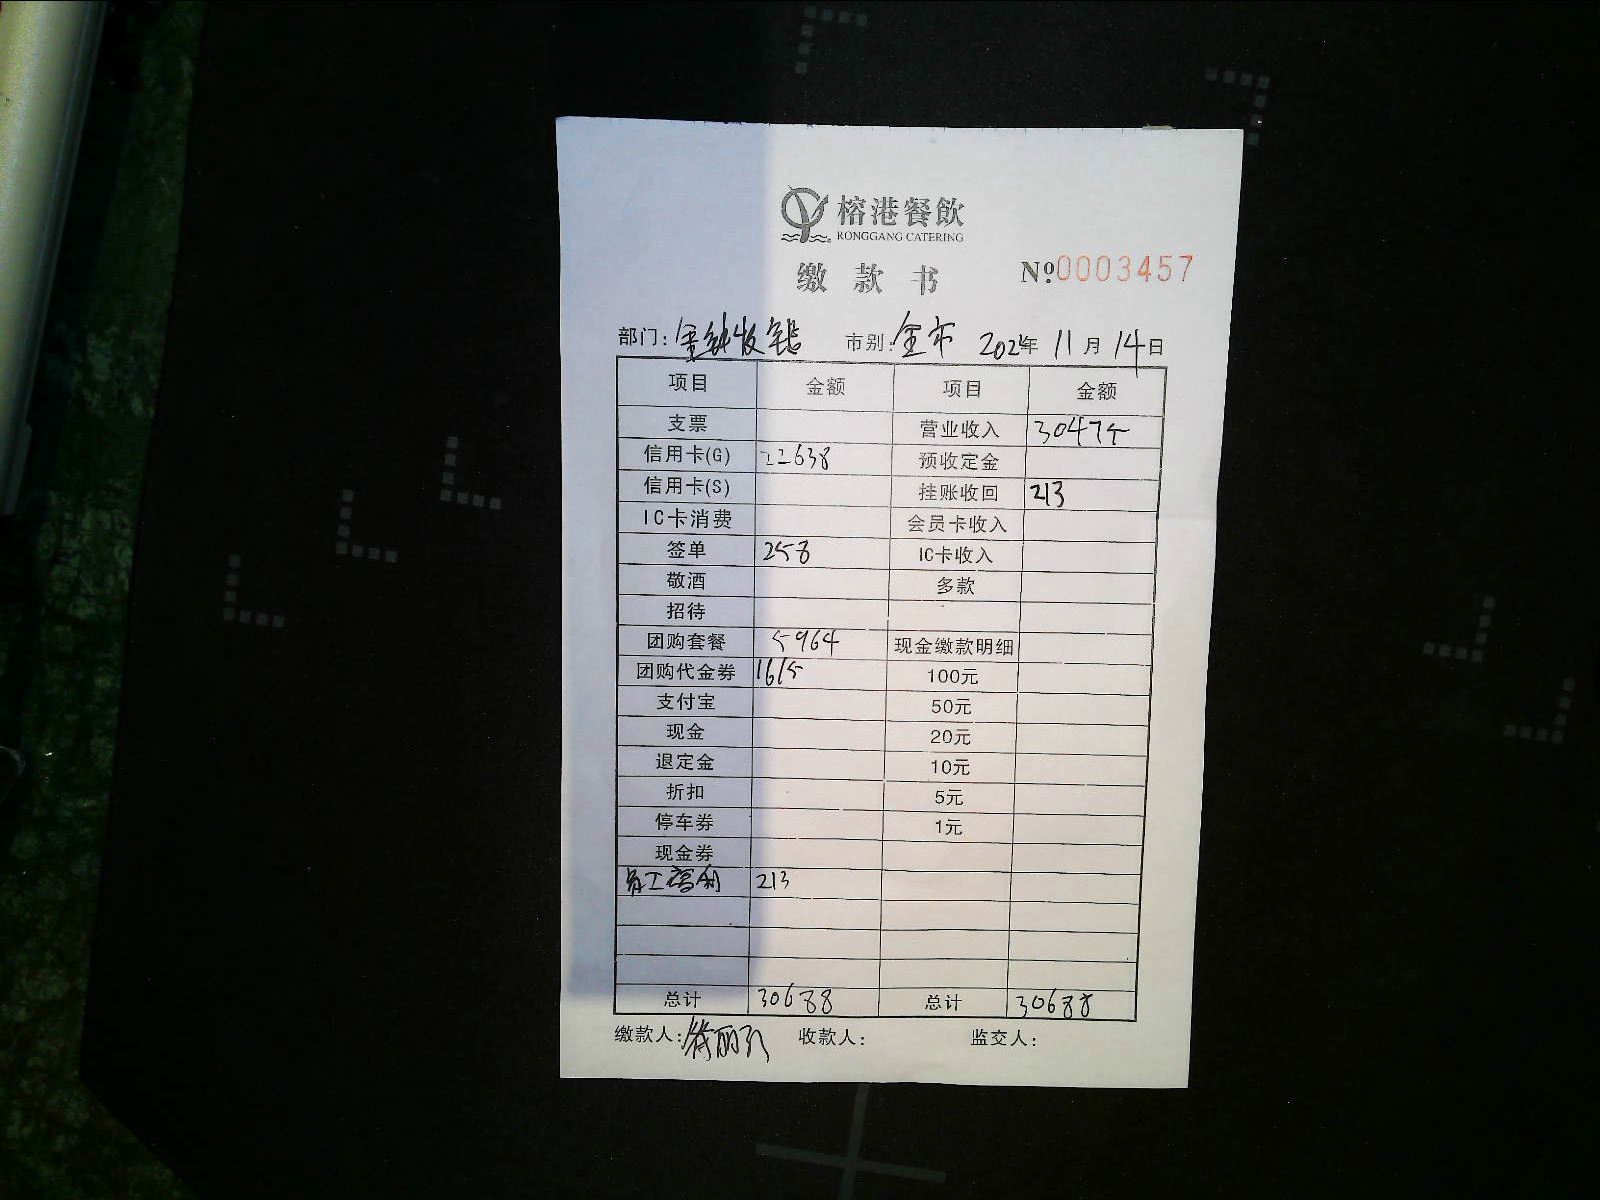 榕港餐飲
RONGGANG CATERING
缴款书 №0003457
部门: 市别: 全市 年 11月 14日
项目 金额 项目 金额
支票 营业收入 30475
信用卡(G) 22638 预收定金
信用卡(S) 挂账收回 213
IC卡消费 会员卡收入
签单 258 IC卡收入
敬酒 多款
招待
团购套餐 5964 现金缴款明细
团购代金券 1615 100元
支付宝 50元
现金 20元
退定金 10元
折扣 5元
停车券 1元
现金券
员工福利 213
总计 30688 总计 30688
缴款人: 收款人: 监交人: